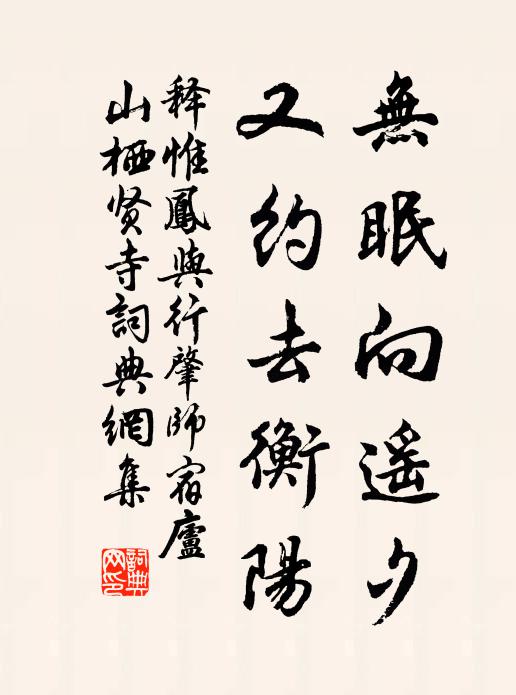 無眠向遥夕
又約去衡陽
释惟鳳與行肇師宿廬
山栖贤寺詞典網集
詞典網印